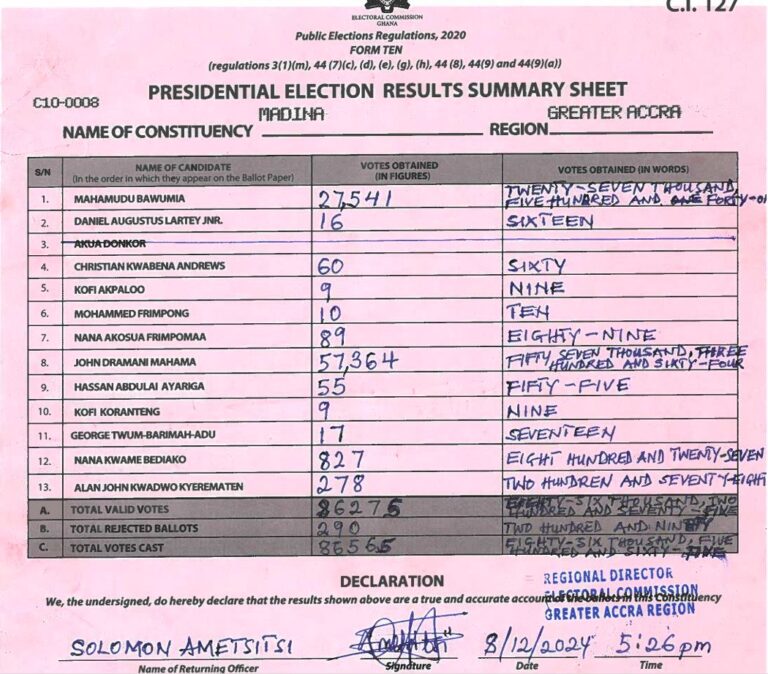 C.I. 127
ELECTORAL COMMISSION
GHANA
Public Elections Regulations, 2020
FORM TEN
(regulations 3(1)(m), 44 (7)(c), (d), (e), (g), (h), 44 (8), 44(9) and 44(9)(a))
PRESIDENTIAL ELECTION RESULTS SUMMARY SHEET
C10-0008
NAME OF CONSTITUENCY MADINA REGION GREATER ACCRA
S/N NAME OF CANDIDATE (In the order in which they appear on the Ballot Paper) VOTES OBTAINED (IN FIGURES) VOTES OBTAINED (IN WORDS)
1. MAHAMUDU BAWUMIA 27,541 TWENTY-SEVEN THOUSAND, FIVE HUNDRED AND FORTY-
2. DANIEL AUGUSTUS LARTEY JNR. 16 SIXTEEN
3. AKUA DONKOR
4. CHRISTIAN KWABENA ANDREWS 60 SIXTY
5. KOFI AKPALOO 9 NINE
6. MOHAMMED FRIMPONG 10 TEN
7. NANA AKOSUA FRIMPOMAA 89 EIGHTY-NINE
8. JOHN DRAMANI MAHAMA 57,364 FIFTY SEVEN THOUSAND, THREE HUNDRED AND SIXTY-FOUR
9. HASSAN ABDULAI AYARIGA 55 FIFTY-FIVE
10. KOFI KORANTENG 9 NINE
11. GEORGE TWUM-BARIMAH-ADU 17 SEVENTEEN
12. NANA KWAME BEDIAKO 827 EIGHT HUNDRED AND TWENTY-SEVEN
13. ALAN JOHN KWADWO KYEREMATEN 278 TWO HUNDREN AND SEVENTY-EIGHT
A. TOTAL VALID VOTES 86275 EIGHTY-SIX THOUSAND, TWO HUNDRED AND SEVENTY-FIVE
B. TOTAL REJECTED BALLOTS 290 TWO HUNDRED AND NINETY
C. TOTAL VOTES CAST 86565 EIGHTY-SIX THOUSAND, FIVE HUNDRED AND SIXTY-FIVE
DECLARATION
REGIONAL DIRECTOR
ELECTORAL COMMISSION
GREATER ACCRA REGION
We, the undersigned, do hereby declare that the results shown above are a true and accurate account of the ballots in this Constituency
SOLOMON AMETSITSI 8/12/2024 5:26pm
Name of Returning Officer Signature Date Time